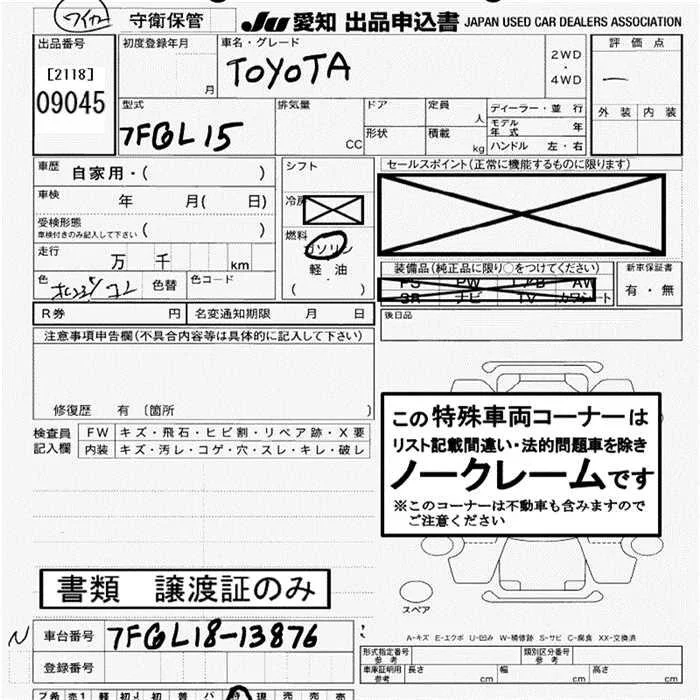 ワイヤー 守衛保管 JU 愛知 出品申込書 JAPAN USED CAR DEALERS ASSOCIATION
出品番号 初度登録年月 月 車名・グレード TOYOTA 2WD ・ 4WD 評価点
[2118] 一
09045 型式 排気量 CC ドア 定員 人 ディーラー・並 行 外装 内装
7FGL15 形状 積載 kg モデル年式 年
ハンドル 左・右
車歴 自家用・( ) シフト セールスポイント(正常に機能するものに限ります)
車検 年 月( 日) 冷房
受検形態 車検付きのみ記入して下さい ( ) 燃料 ガソリン
走行 万 千 km 軽油 装備品(純正品に限り○をつけてください) 新車保証書
色 色替 色コード ( ) PS PW エアB AW 有・無
SR ナビ TV カワシート
R券 円 名変通知期限 月 日 後日品
注意事項申告欄(不具合内容等は具体的に記入して下さい)
修復歴 有 〔箇所 〕
検査員記入欄 FW キズ・飛石・ヒビ割・リペア跡・X要
内装 キズ・汚レ・コゲ・穴・スレ・キレ・破レ
この特殊車両コーナーは
リスト記載間違い・法的問題車を除き
ノークレームです
※このコーナーは不動車も含みますので
ご注意ください
書類 譲渡証のみ
スペア
N 車台番号 7FGL18-13876
A-キズ E-エクボ U-凹み W-補修跡 S-サビ C-腐食 XX-交換済
登録番号 形式指定番号 参考 類別区分番号 参考
車庫証明用 参考 長さ cm 幅 cm 高さ cm